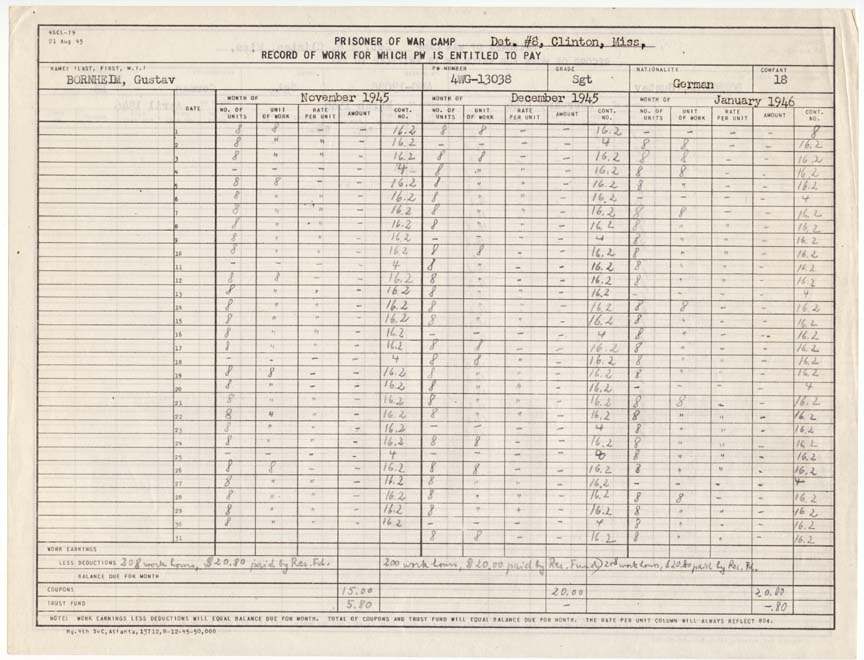 4SCS-19
01 Aug 45
PRISONER OF WAR CAMP Det. #8, Clinton, Miss,
RECORD OF WORK FOR WHICH PW IS ENTITLED TO PAY
NAME: (LAST, FIRST, M.I.) PW NUMBER GRADE NATIONALITY COMPANY
BORNHEIM, Gustav 4WG-13038 Sgt German 18
MONTH OF November 1945 MONTH OF December 1945 MONTH OF January 1946
DATE NO. OF UNITS UNIT OF WORK RATE PER UNIT AMOUNT CONT. NO. NO. OF UNITS UNIT OF WORK RATE PER UNIT AMOUNT CONT. NO. NO. OF UNITS UNIT OF WORK RATE PER UNIT AMOUNT CONT. NO.
1 8 8 - - 16.2 8 8 - - 16.2 - - - - 8
2 8 " " - 16.2 - - - - 4 8 8 - - 16.2
3 8 " " - 16.2 8 8 - - 16.2 8 8 - - 16.2
4 - - - - 4 8 " " - 16.2 8 8 - - 16.2
5 8 8 - - 16.2 8 " " - 16.2 8 " - - 16.2
6 8 " " - 16.2 8 " " - 16.2 - - - - 4
7 8 " " - 16.2 8 " " - 16.2 8 8 - - 16.2
8 8 " " - 16.2 8 " " - 16.2 8 " " - 16.2
9 8 " " - 16.2 - - - - 4 8 " " - 16.2
10 8 " " - 16.2 8 8 - - 16.2 8 " " - 16.2
11 - - - - 4 8 " - - 16.2 8 " " - 16.2
12 8 8 - - 16.2 8 " " - 16.2 8 " " - 16.2
13 8 " " - 16.2 8 " " - 16.2 - - - - 4
14 8 " " - 16.2 8 " " - 16.2 8 8 - - 16.2
15 8 " " - 16.2 8 " " - 16.2 8 " " - 16.2
16 8 " " - 16.2 - - - - 4 8 " " - 16.2
17 8 " " - 16.2 8 8 - - 16.2 8 " " - 16.2
18 - - - - 4 8 8 - - 16.2 8 " " - 16.2
19 8 8 - - 16.2 8 " " - 16.2 8 " " - 16.2
20 8 " - - 16.2 8 " " - 16.2 - - - - 4
21 8 " " - 16.2 8 " " - 16.2 8 8 - - 16.2
22 8 " " - 16.2 8 " " - 16.2 8 " " - 16.2
23 8 " " - 16.2 - - - - 4 8 " " - 16.2
24 8 " " - 16.2 8 8 - - 16.2 8 " " - 16.2
25 - - - - 4 - - - - 8 8 " " - 16.2
26 8 8 - - 16.2 8 8 - - 16.2 8 " " - 16.2
27 8 " " - 16.2 8 " " - 16.2 - - - - 4
28 8 " " - 16.2 8 " " - 16.2 8 8 - - 16.2
29 8 " " - 16.2 8 " " - 16.2 8 " " - 16.2
30 8 " " - 16.2 - - - - 4 8 " " - 16.2
31 8 8 - - 16.2 8 " " - 16.2
WORK EARNINGS
LESS DEDUCTIONS 208 work hours, $20.80 paid by Res. Fd. 200 work hours, $20,00 paid by Res. Fund, work hours, paid by Res. Fd.
BALANCE DUE FOR MONTH
COUPONS 15.00 20.00 20.00
TRUST FUND 5.80 - -.80
NOTE: WORK EARNINGS LESS DEDUCTIONS WILL EQUAL BALANCE DUE FOR MONTH. TOTAL OF COUPONS AND TRUST FUND WILL EQUAL BALANCE DUE FOR MONTH. THE RATE PER UNIT COLUMN WILL ALWAYS REFLECT 80¢.
Hq.4th SvC,Atlanta,15712,8-12-45-50,000